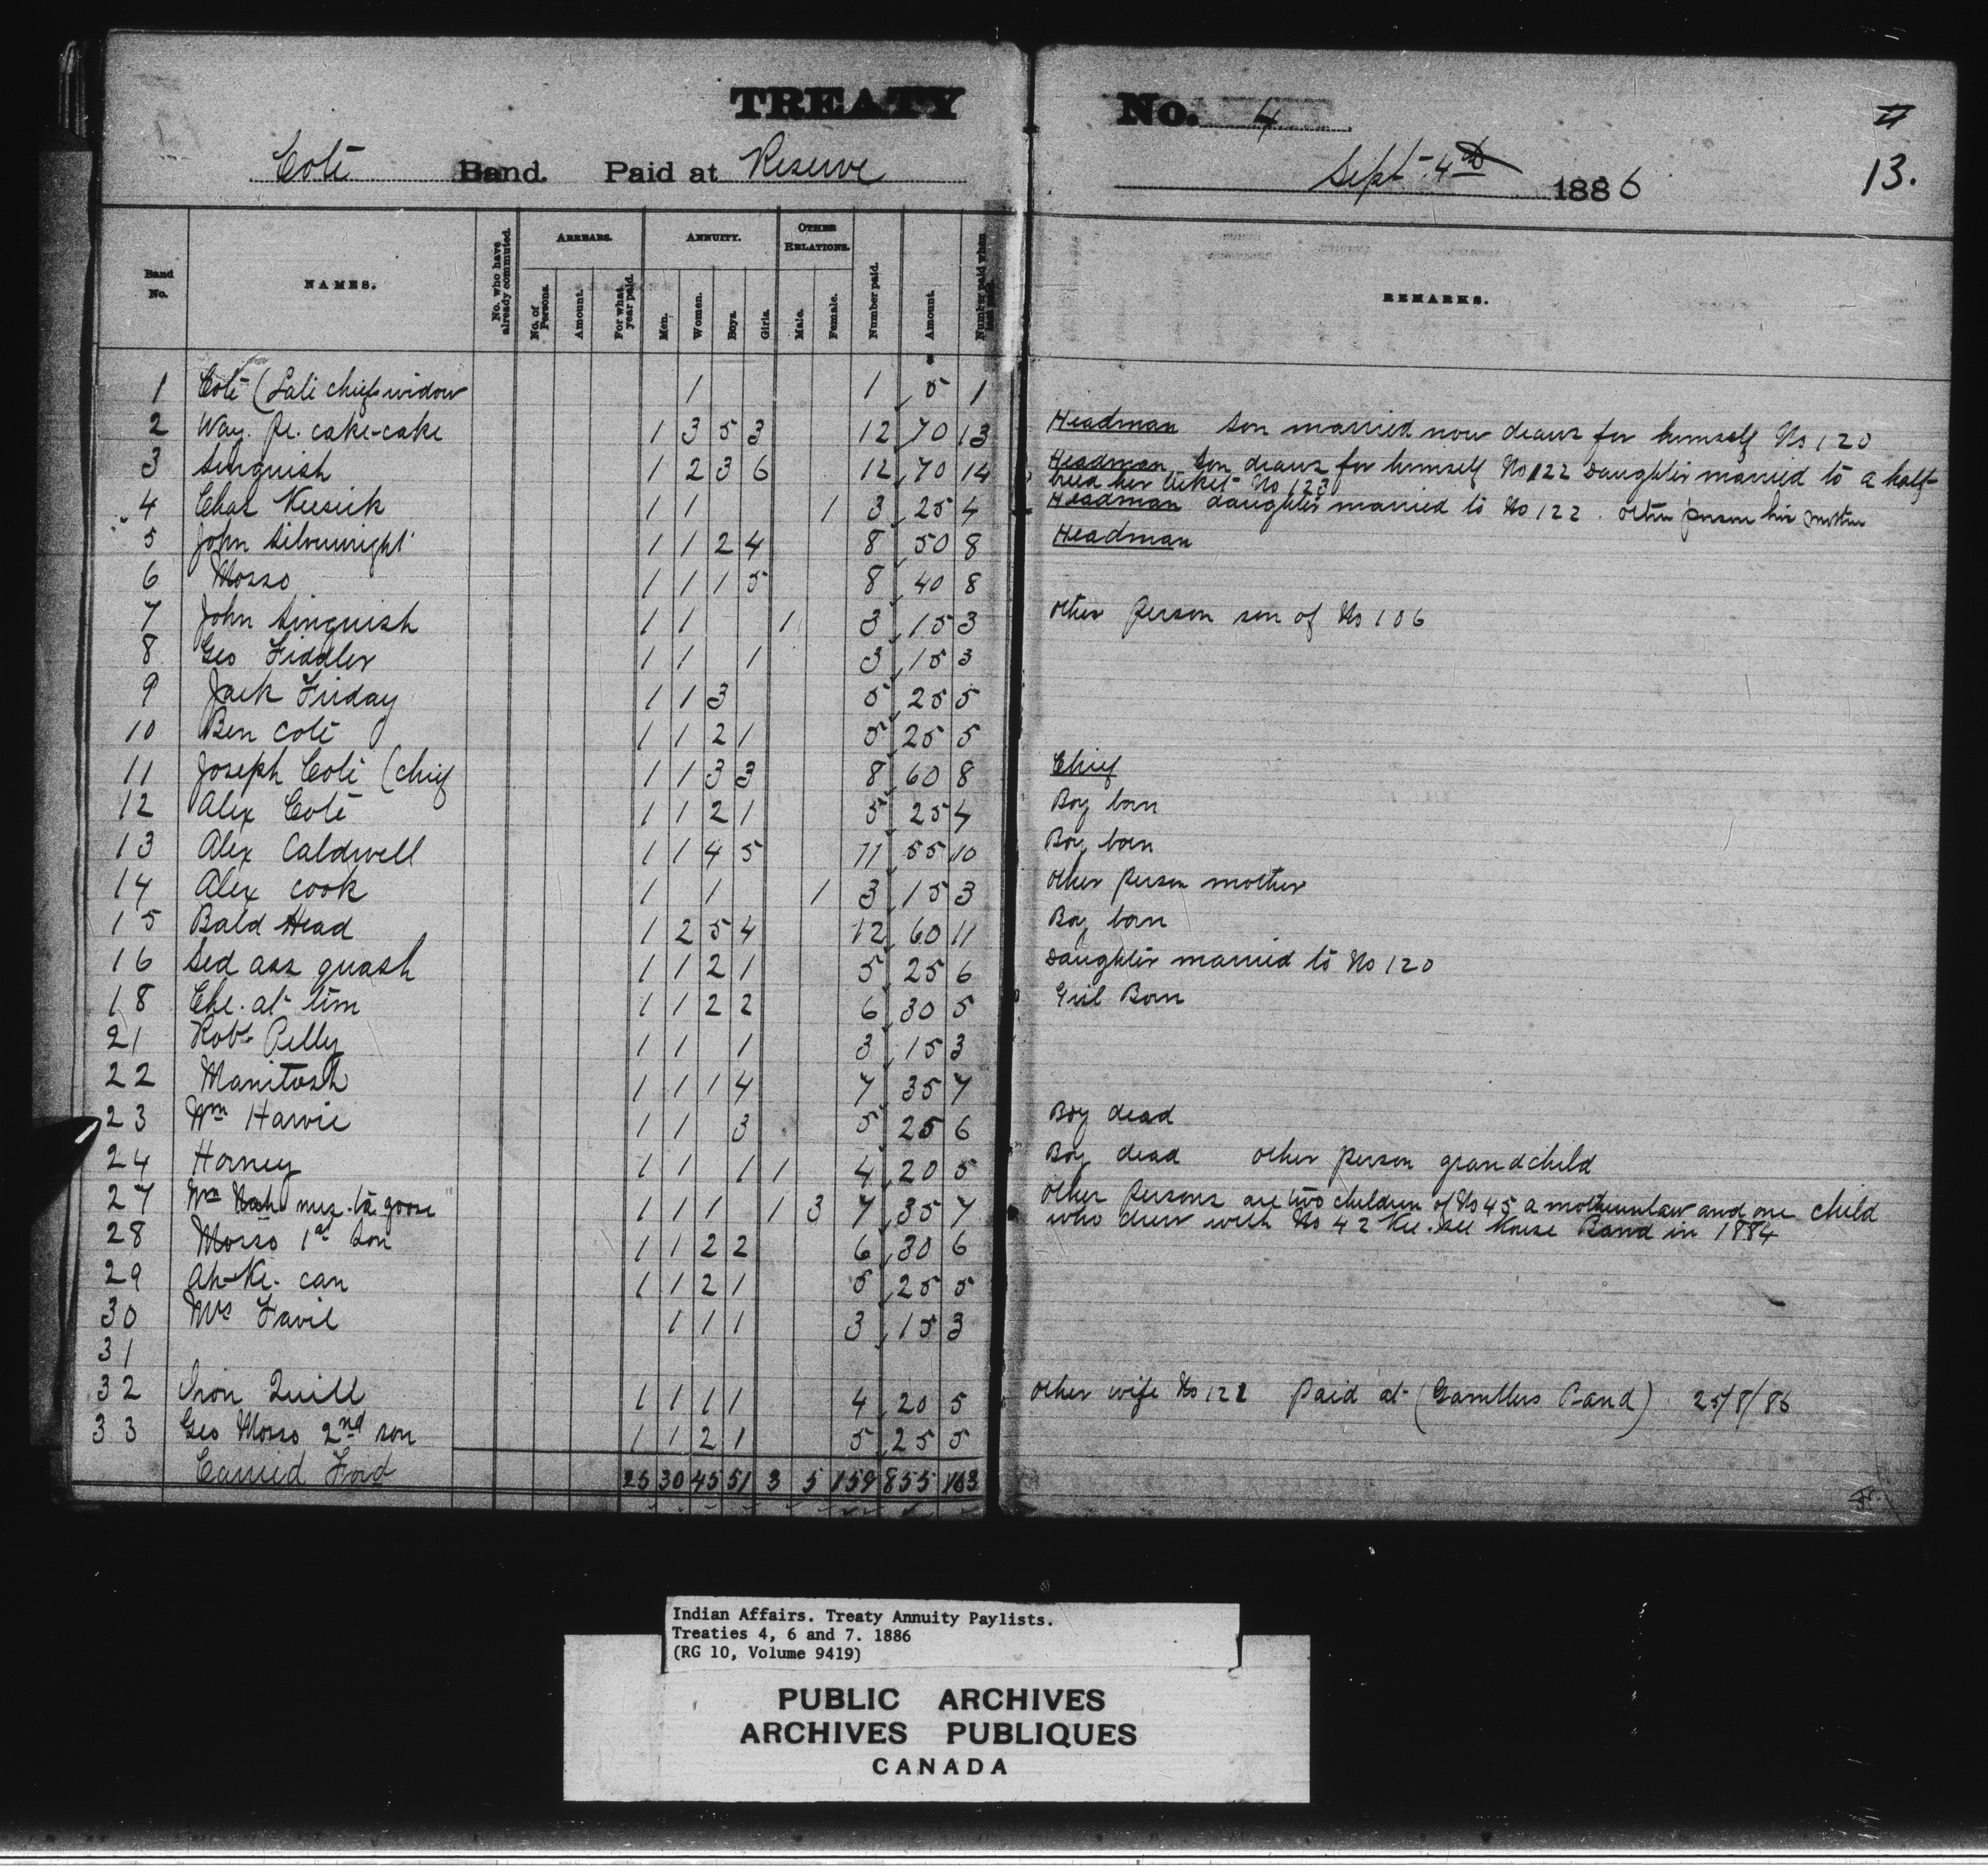 TREATY No. 4
11
13.
Coté Band. Paid at Reserve Sept 4th 1886
Band No. NAMES. No. who have already commuted. ARREARS. No. of Persons. Amount. For what year paid. ANNUITY. Men. Women. Boys. Girls. OTHER RELATIONS. Male. Female. Number paid. Amount. Number paid when last paid. REMARKS.
1 Coté (Late chiefs widow 1 1 5 1
2 Way. pe. cake-cake 1 3 5 3 12 70 13 Headman Son married now draws for himself No 120
3 Sinquish 1 2 3 6 12 70 14 Headman Son draws for himself No 122 Daughter married to a half-
breed her ticket No 123
4 Chas Keesick 1 1 1 3 25 4 Headman daughter married to No 122. Other person his mother
5 John Silverwright 1 1 2 4 8 50 8 Headman
6 Mosso 1 1 1 5 8 40 8
7 John Sinquish 1 1 1 3 15 3 Other person son of No 106
8 Geo Fiddler 1 1 1 3 15 3
9 Jack Friday 1 1 3 5 25 5
10 Ben Coté 1 1 2 1 5 25 5
11 Joseph Coté (chief 1 1 3 3 8 60 8 Chief
12 Alex Coté 1 1 2 1 5 25 4 Boy born
13 Alex Caldwell 1 1 4 5 11 55 10 Boy born
14 Alex Cook 1 1 1 3 15 3 Other person mother
15 Bald Head 1 2 5 4 12 60 11 Boy born
16 Sed ass quash 1 1 2 1 5 25 6 Daughter married to No 120
18 Che. at tim 1 1 2 2 6 30 5 Girl Born
21 Robt Pelly 1 1 1 3 15 3
22 Manitosh 1 1 1 4 7 35 7
23 Wm Harvie 1 1 3 5 25 6 Boy dead
24 Horney 1 1 1 1 4 20 5 Boy dead other person grandchild
27 Wm Nah mus. ta goose 1 1 1 1 3 7 35 7 Other persons are two children of No 45 a motherinlaw and one child
who drew with No 42 Kee. see Kouse Band in 1884
28 Mosso 1st Son 1 1 2 2 6 30 6
29 Ah-Ke. can 1 1 2 1 5 25 5
30 Mrs Favil 1 1 1 3 15 3
31
32 Iron Quill 1 1 1 1 4 20 5 Other wife No 121 Paid at (Gamblers Band) 25/8/86
33 Geo Mosso 2nd son 1 1 2 1 5 25 5
Carried Ford 25 30 45 51 3 5 159 855 163
Indian Affairs. Treaty Annuity Paylists.
Treaties 4, 6 and 7. 1886
(RG 10, Volume 9419)
PUBLIC ARCHIVES
ARCHIVES PUBLIQUES
CANADA